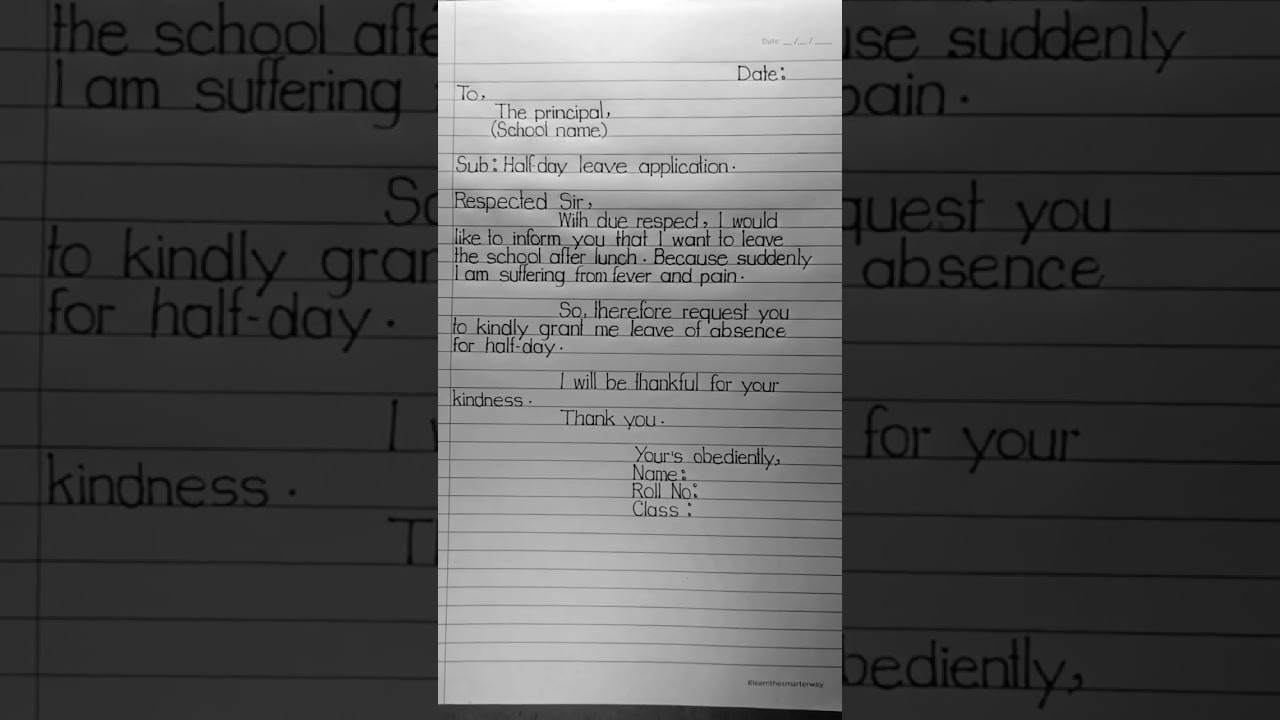 Date: __/__/____
Date:
To,
The principal,
(School name)
Sub: Half-day leave application.
Respected Sir,
With due respect, I would
like to inform you that I want to leave
the school after lunch. Because suddenly
I am suffering from fever and pain.
So, therefore request you
to kindly grant me leave of absence
for half-day.
I will be thankful for your
kindness.
Thank you.
Your's obediently,
Name:
Roll No:
Class :
#learnthesmarterway